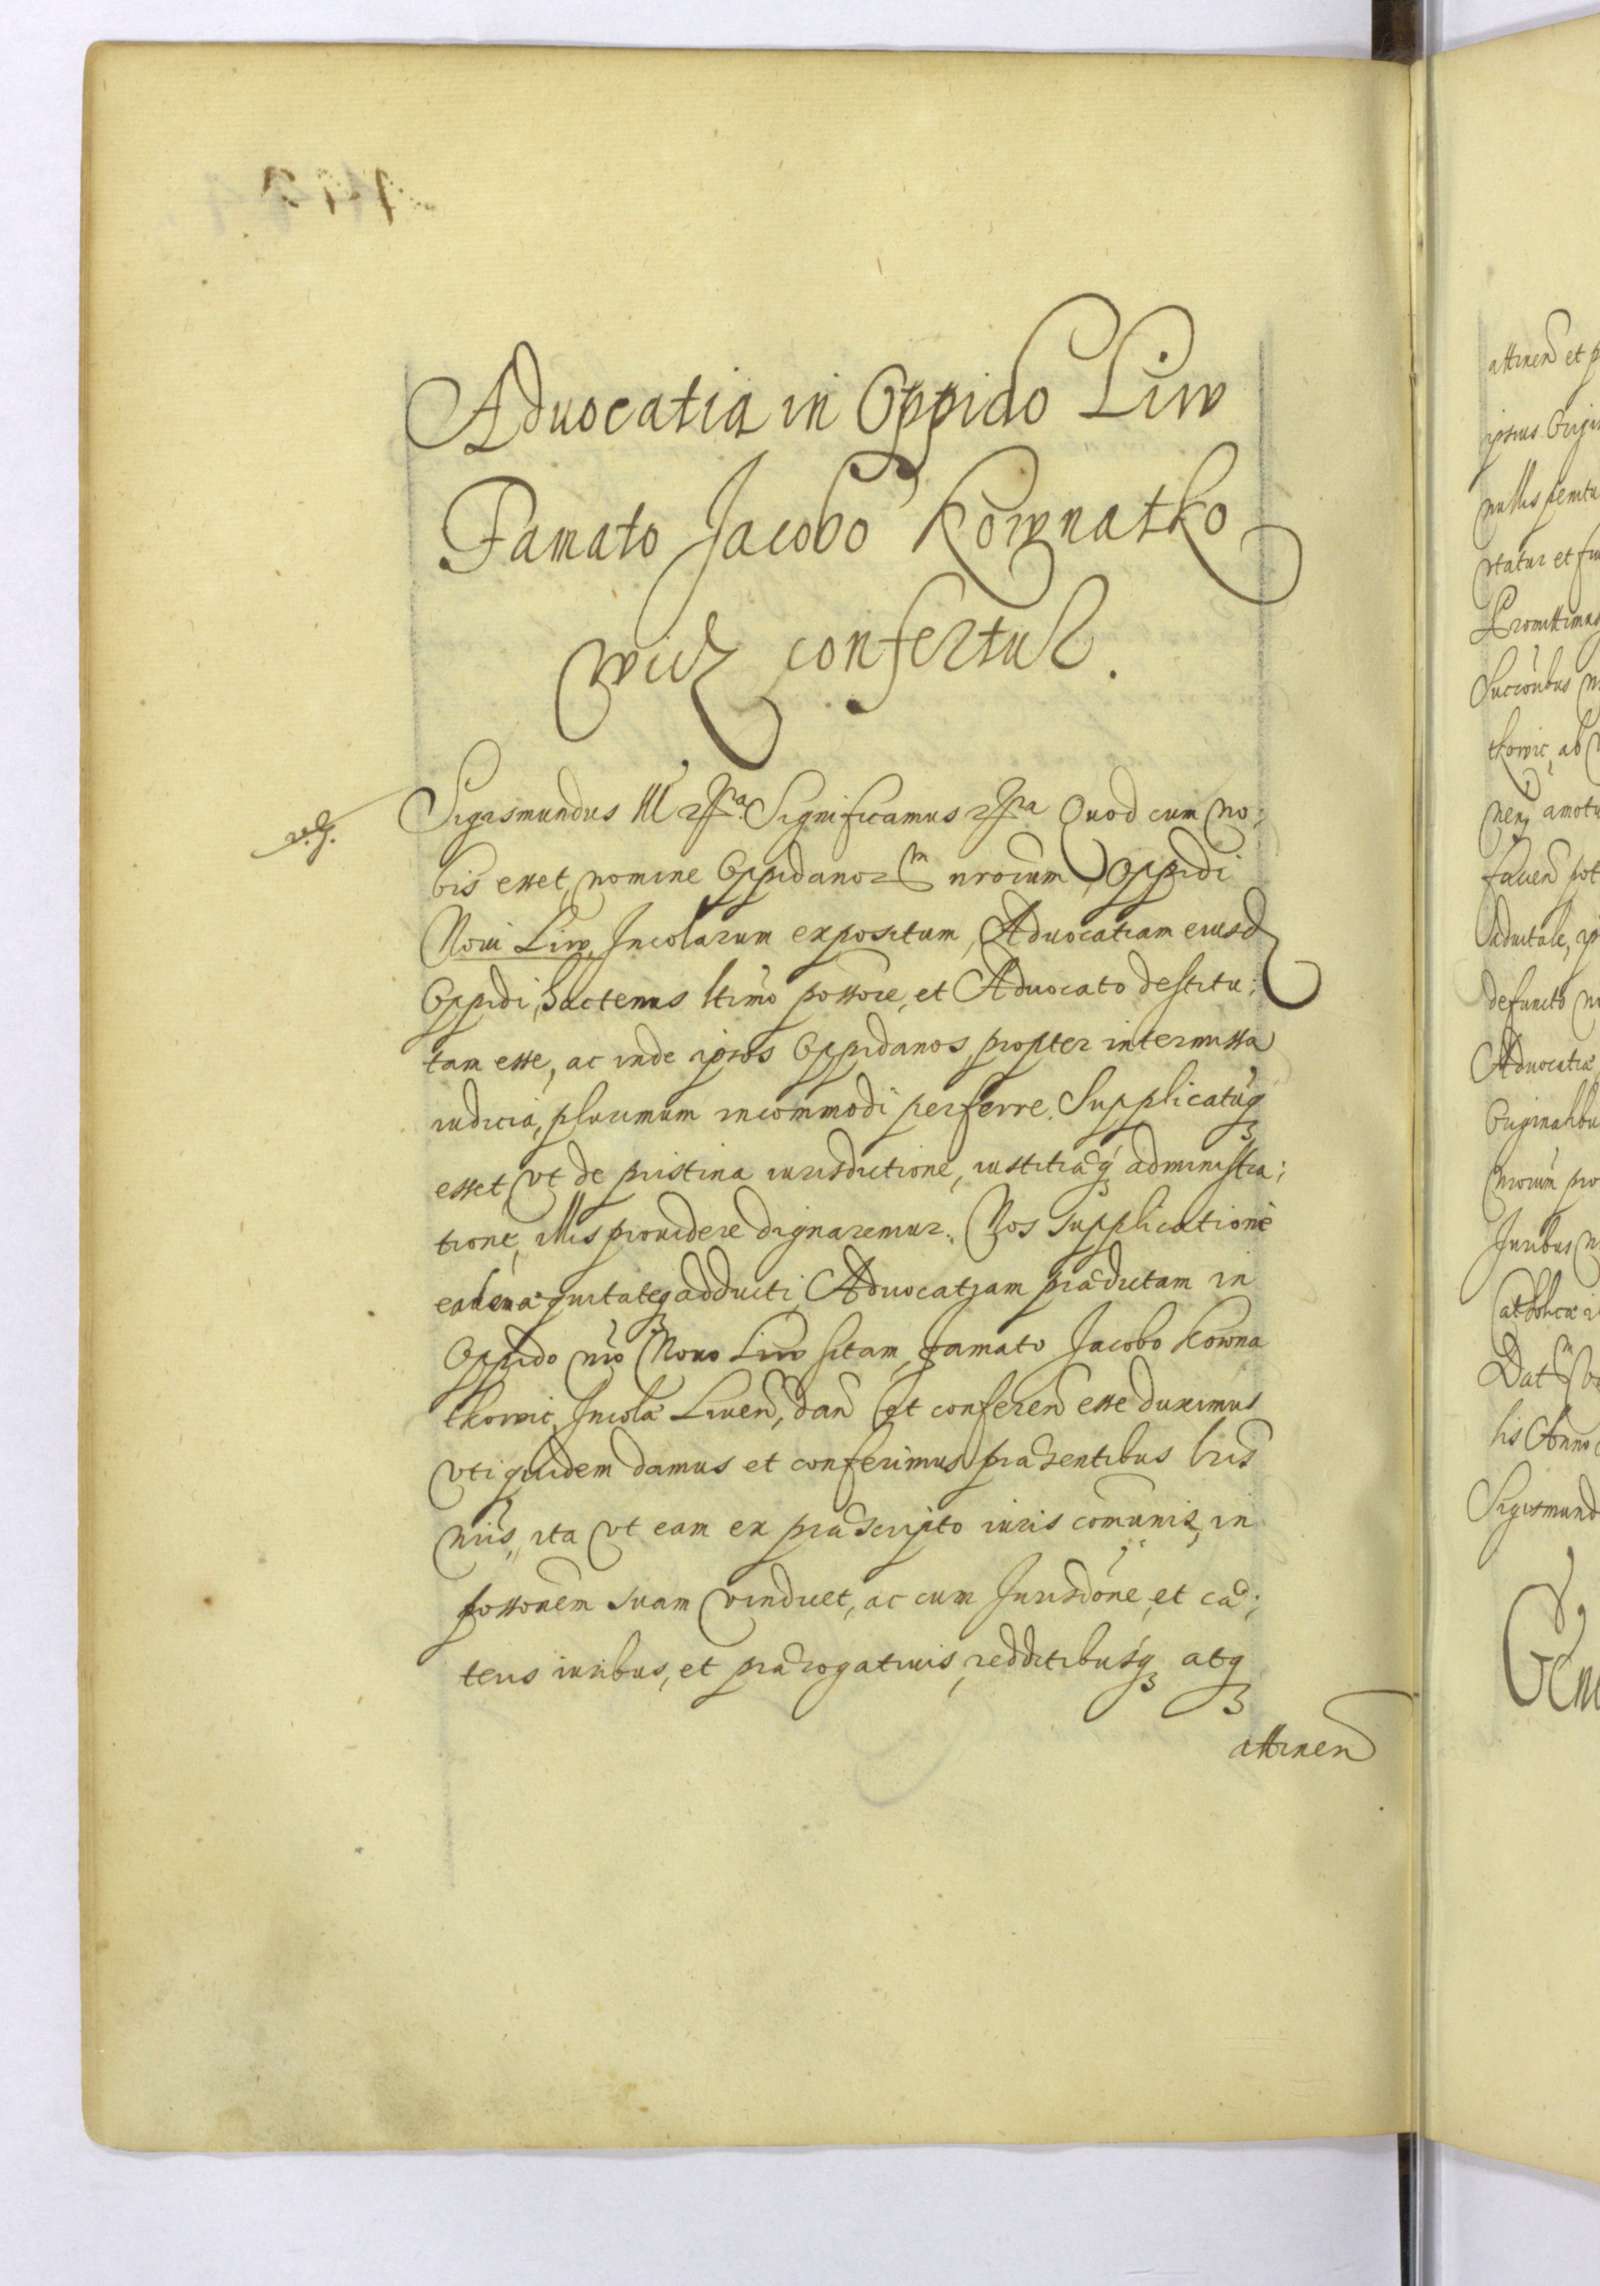 Aduocatia in Oppido Liw
Famato Jacobo Kownatko
wicz confertur.
Sigismundus III Significamus Quod cum no:
bis esset, nomine Oppidanor nrorum, Oppidi
Noui Liw, Incolarum expositum, Aduocatiam eiusd
Oppidi, hactenus ltimo possore, et Aduocato destitu:
tam esse, ac inde ipsos Oppidanos, propter intermissa
iudicia, plurimum incommodi perferre. Supplicatuq
esset vt de pristina iurisdictione, iustitiaq administra:
tione, illis prouidere dignaremur. Nos supplicatione
ea quitateq adducti, Aduocatiam prædictam in
Oppido nro Nouo Liw sitam, famato Jacobo Kowna
tkowic, Incolæ Liuen, dan et conferen esse duximus
vti quidem damus et conferimus præsentibus lris
nris, ita vt eam ex præscripto iuris comunis, in
possonem suam vindicet, ac cum Jurisdone, et cæ:
teris iuribus, et prærogatiuis, redditibusq atq
attinen
attinen et
ipsius
nullis penitu
Promittimus
tkowic, ab
amotu
fauen
aduitale,
defuncto
Aduocatiæ
Originalibu
Juribus
Catholicæ
Dat
lis Anno
Sigismund